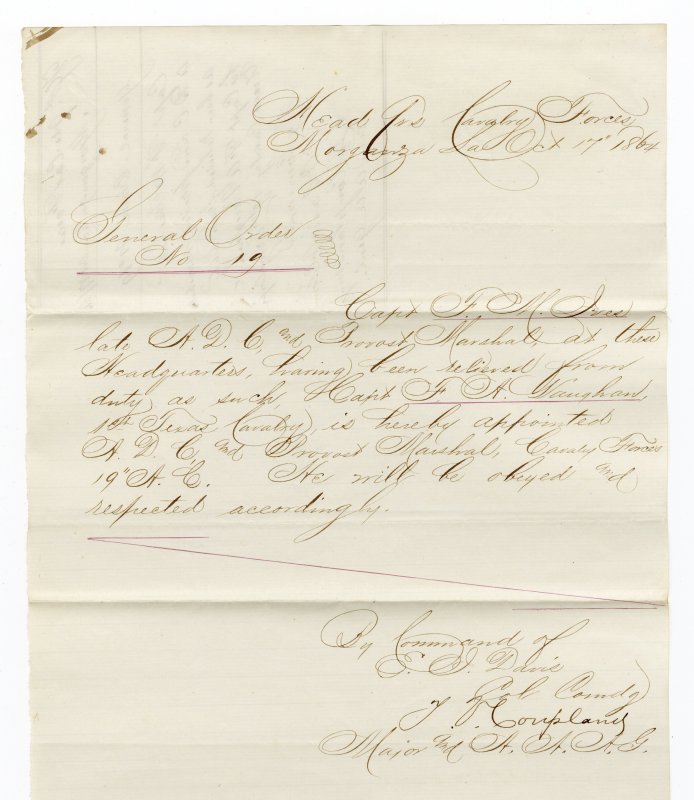 Head Qrs Cavalry Forces
Morganza La Oct 17" 1864
General Order
No 19
Capt F. M. Ives
late A. D. C. and Provost Marshal, at these
Headquarters, having been relieved from
duty as such Capt F. A. Vaughan,
1st Texas Cavalry, is hereby appointed
A. D. C. and Provost Marshal, Cavalry Forces
19" A. C. He will be obeyed and
respected accordingly.
By Command of
E. J. Davis
Col Comdg
T. Coupland
Major and A. A. A. G.